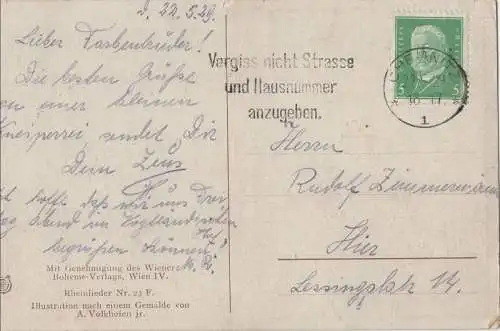 d. 22.5.29.
Lieber Farbenbruder!
Die besten Grüße
von einer kleinen
Kneiperei sendet Dir
Dein Zeus
Ich hoffe, daß wir uns Frei-
tag abend im Vogtländischen Hof
begrüßen können!
Mit Genehmigung des Wiener
Boheme-Verlags, Wien IV.
Rheinlieder Nr. 23 F.
Illustration nach einem Gemälde von
A. Volkhofen jr.
Vergiss nicht Strasse
und Hausnummer
anzugeben.
5 5
1
Herrn
Rudolf Zimmermann
Hier
Lessingplatz 14.